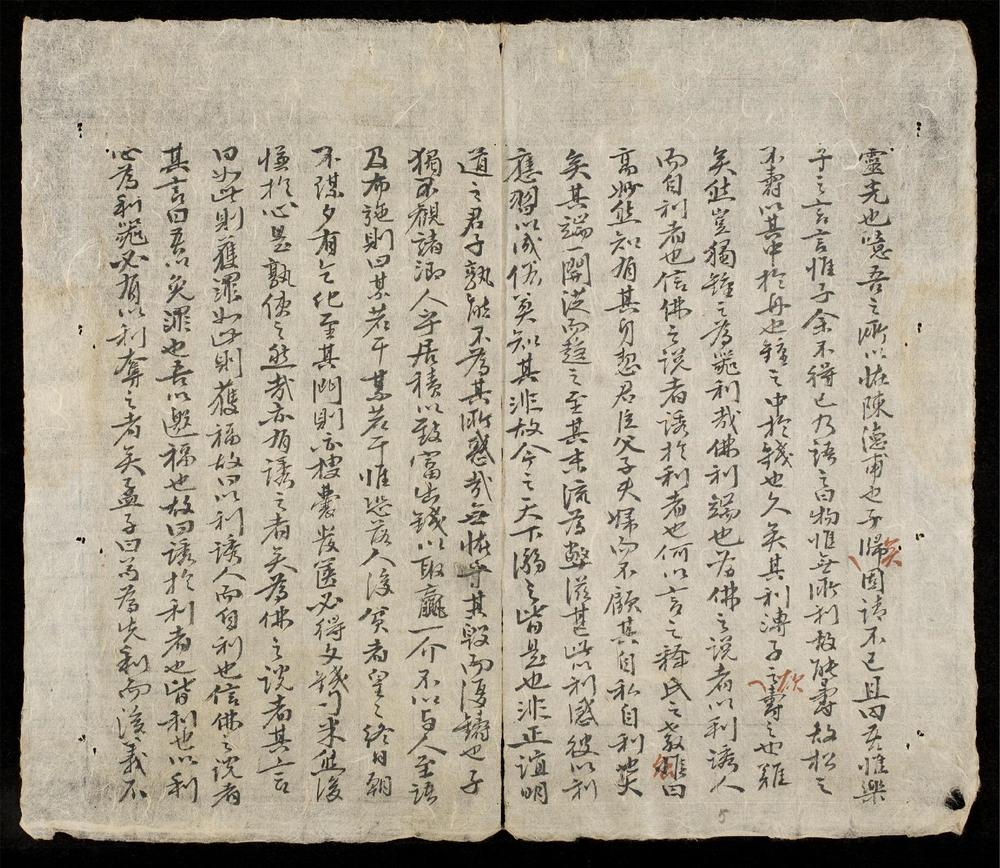 靈光也噫吾之所以怪陳德甫也予歸矣固請不已且曰吾惟樂
子之言言惟子余不得已乃語之曰物惟無所利故能壽故松之
不壽以其中於舟也鐘之中於錢也久矣其利溥子欲壽之也難
矣然豈獨鐘之為罷利哉佛利端也為佛之說者以利誘人
而自利者也信佛之說者誘於利者也何以言之釋氏之教雖曰
高妙然知有其身恝君臣父子夫婦而不顧其自私自利典
矣其端一開從而趍之至其末流為弊滋甚此以利感彼以利
應習以成俗莫知其非故今之天下溺之皆是也非正誼明
道之君子孰能不為其所惑哉無怪乎其毀而復鑄也子
獨不觀諸涵人乎居積以致富出錢以取贏一介不以与人至語
及布施則曰某若干某若干惟恐落人後貧者皇々終日朝
不謀夕有乞化至其門則亦捜囊發篋必得文錢勺米然後
慊於心是孰使之然哉亦有誘之者矣為佛之說者其言
曰如此則獲罪如此則獲福故曰以利誘人而自利也信佛之說者
其言曰吾以免罪也吾以邀福也故曰誘於利者也皆利也以利
心為利罷必有以利奪之者矣孟子曰苟為先利而後義不
5